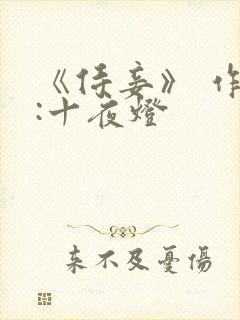 《侍妾》 作
:十夜燈
来不及憂傷